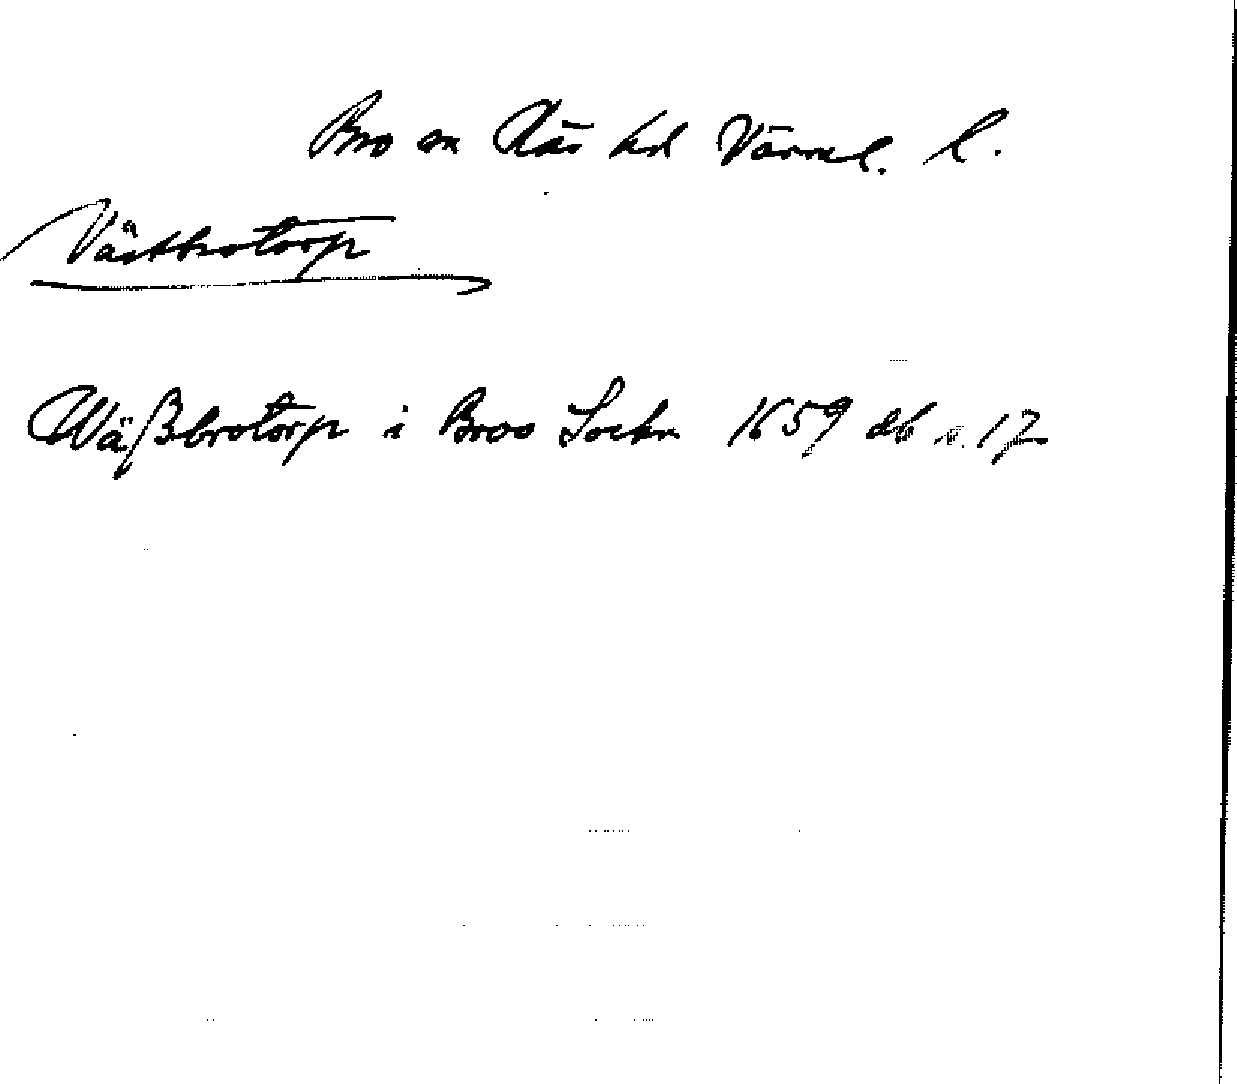 Bro sn Näs hd Värml. l.
Västbrotorp
Wäßbrotorp i Broo Sockn 1659 db s. 12